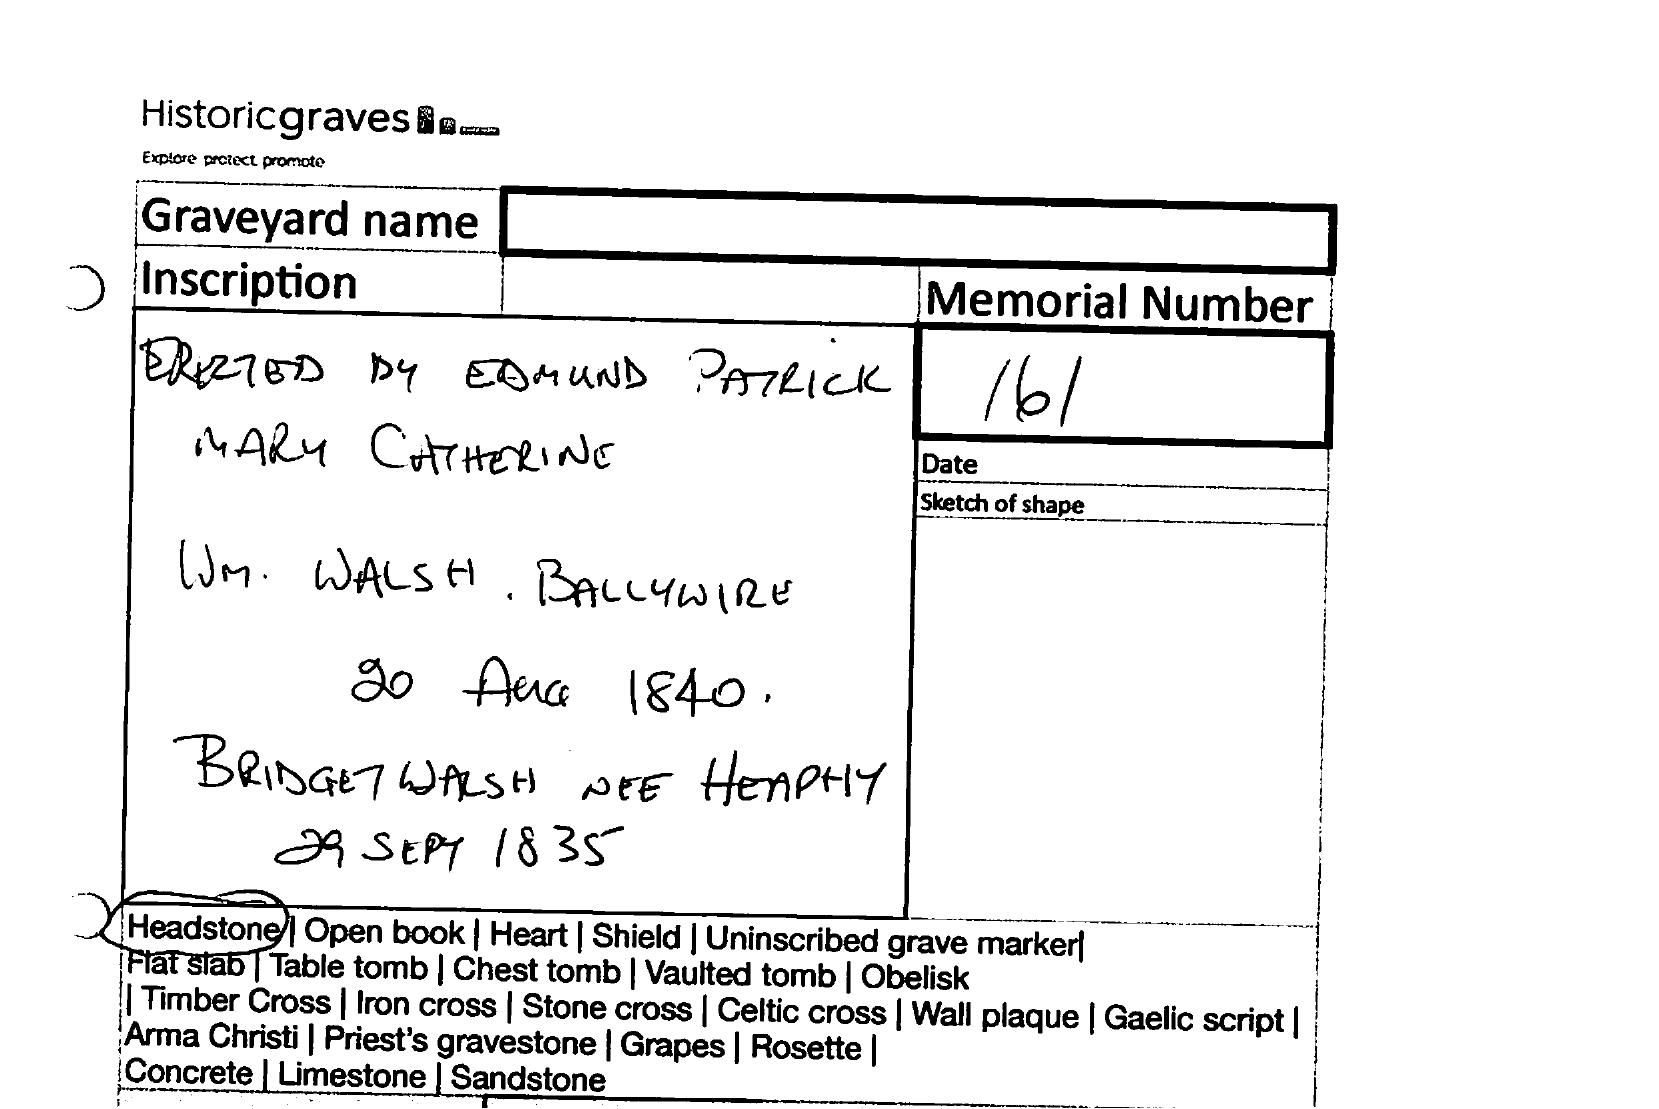 Historicgraves
Explore protect promote
Graveyard name
Inscription
Memorial Number
ERECTED BY EDMUND PATRICK
MARY CATHERINE
WM. WALSH. BALLYWIRE
20 AUG 1840.
BRIDGET WALSH NEE HEAPHY
29 SEPT 1835
161
Date
Sketch of shape
Headstone | Open book | Heart | Shield | Uninscribed grave marker|
Flat slab | Table tomb | Chest tomb | Vaulted tomb | Obelisk
| Timber Cross | Iron cross | Stone cross | Celtic cross | Wall plaque | Gaelic script |
Arma Christi | Priest's gravestone | Grapes | Rosette |
Concrete | Limestone | Sandstone